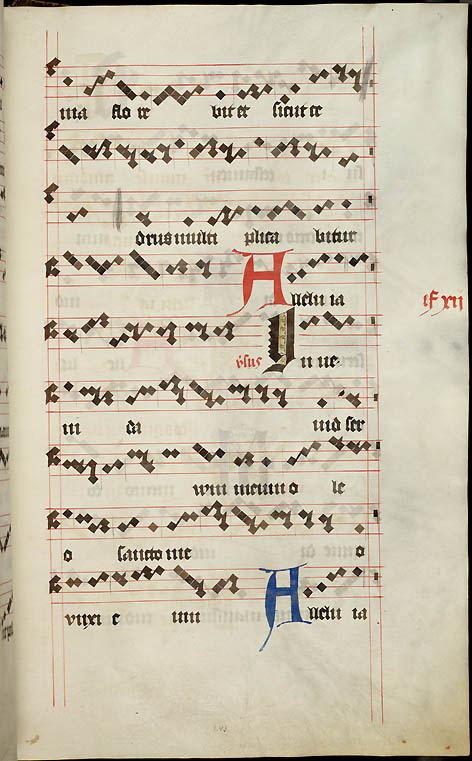 ma flo re bit et sicut ce
drus multi plica bitur
Allelu ia
vsus In ue
ni da uid ser
uum meum o le
o sancto me o
vnxi e um Allelu ia
lf xij